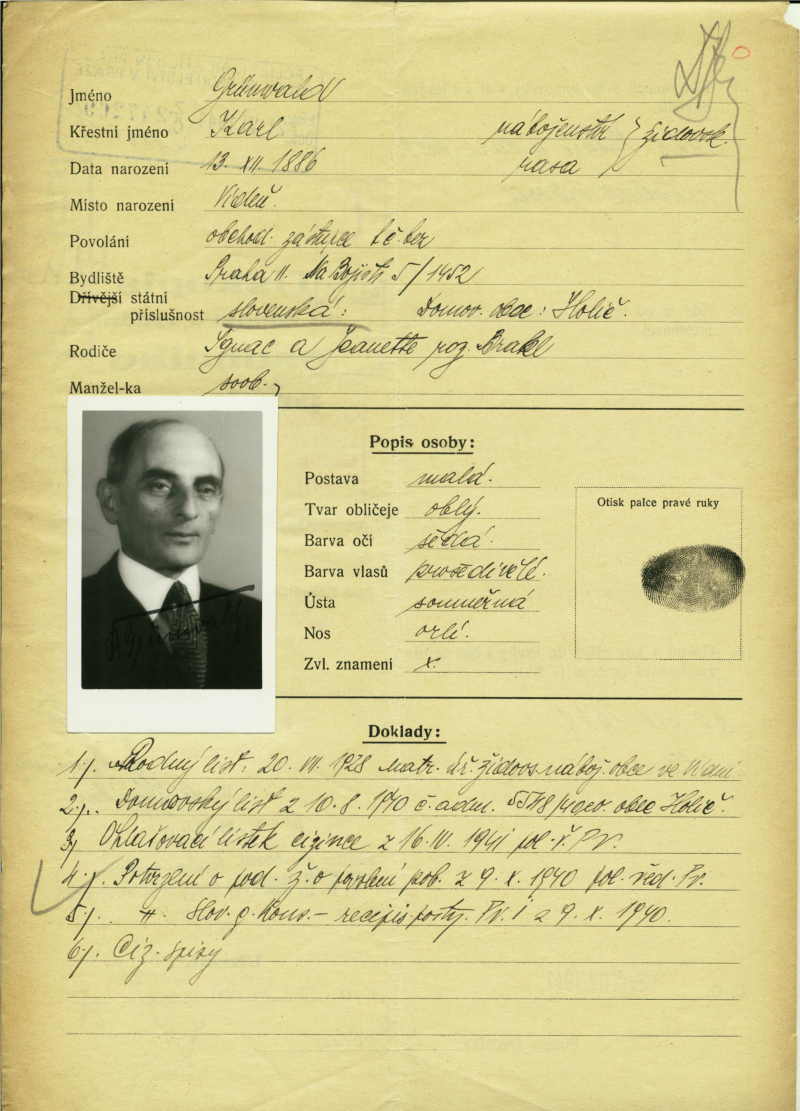 Jméno Grünwald
Křestní jméno Karl nábožensk židovsk.
Data narození 13. XII. 1886 rasa
Místo narození Vídeň.
Povolání obchod. zástupce t. č. bez
Bydliště Praha II. Na Bojišti 5/1452
Dřívější státní
příslušnost slovenská: Domov. obec: Holič.
Rodiče Ignac a Jeanette roz.
Manžel-ka svob.
Popis osoby:
Postava malá.
Tvar obličeje oblý.
Barva očí šedá.
Barva vlasů prošedivělé.
Ústa souměrná
Nos orlí.
Zvl. znamení x.
Otisk palce pravé ruky
Doklady:
1./. Rodný list. 20. 1928 matr. židovs. nábož. obce ve Vídni
2./. Domovský list z 10. 8. 1940 č. adm. obec Holič.
3./ Ohlašovací lístek cizince z 16. IV. 1941 pol. ř. Pr.
4./. Potvrzení o pod. ž. o pob. z 9. X. 1940 pol. řed. Pr.
5./. Slov. g. Konz. – recipis pošty. Pr. 1 z 9. X. 1940.
6./. Ciz. spisy